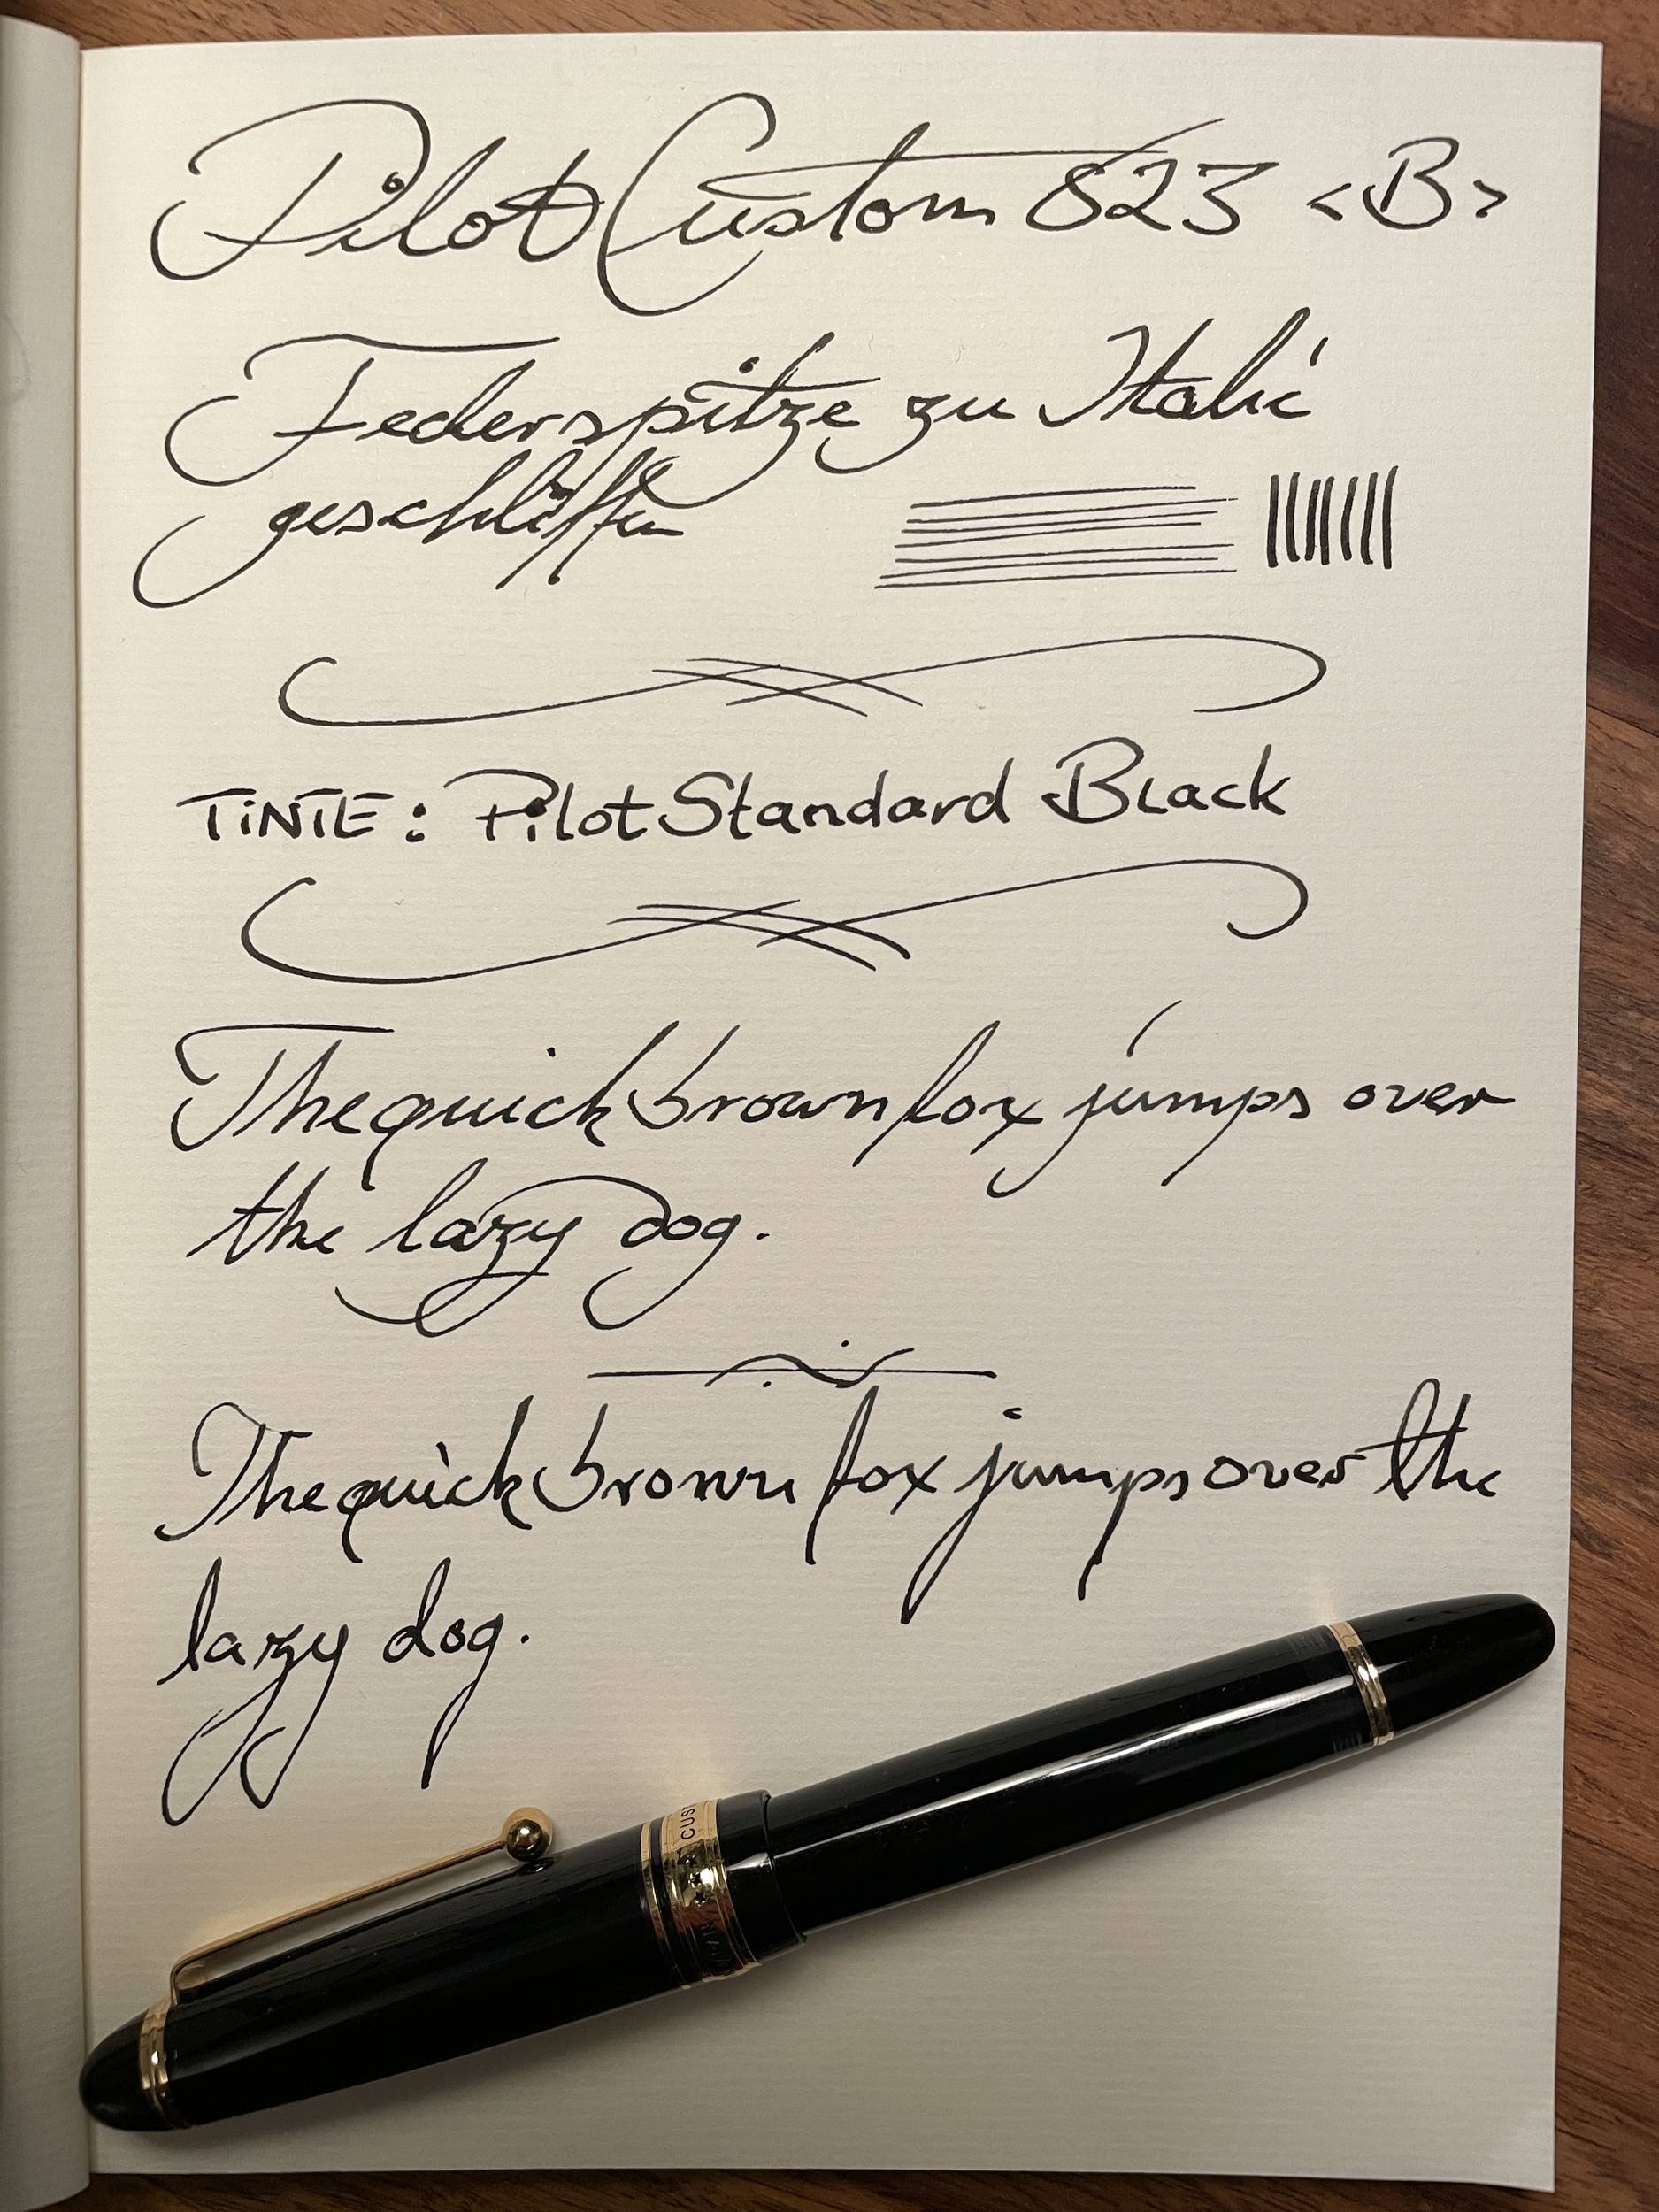 Pilot Custom 823 <B>
Federspitze zu Italic
geschliffen
TiNTE: Pilot Standard Black
The quick brown fox jumps over
the lazy dog.
The quick brown fox jumps over the
lazy dog.
CUST